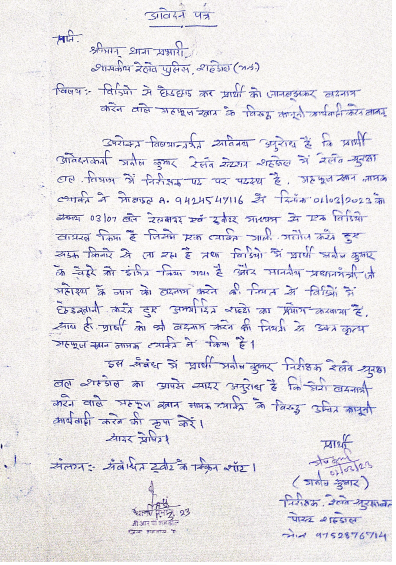 आवेदन पत्र
प्रति,
श्रीमान् थाना प्रभारी
शासकीय रेलवे पुलिस, शहडोल (म.प्र.)
विषय:- विडियो से छेडछाड कर प्रार्थी को जानबूझकर बदनाम
करने वाले महफूज खान के विरूद्ध कानूनी कार्यवाही करने बाबत्
उपरोक्त विषयान्तर्गत सविनय अनुरोध है कि प्रार्थी
आवेदनकर्ता मनोज कुमार रेलवे स्टेशन शहडोल में रेलवे सुरक्षा
बल विभाग में निरीक्षक पद पर पदस्थ है. महफूज खान नामक
व्यक्ति ने मोबाइल नं. 9424547116 से दिनांक 01/03/2023 के
समय 03/07 बजे एवं ट्वीटर माध्यम से एक विडियो
वायरल किया है जिसमें एक व्यक्ति गाली गलौज करते हुए
सडक किनारे से जा रहा है तथा विडियो में प्रार्थी मनोज कुमार
के चेहरे को इंगित किया गया है और माननीय प्रधानमंत्री जी
महोदय के नाम को बदनाम करने की नियत से विडियो में
छेडखानी करते हुए अमर्यादित शब्दो का प्रयोग करवाया है.
साथ ही प्रार्थी को भी बदनाम करने की नियती से उक्त कृत्य
महफूज खान नामक व्यक्ति ने किया है।
इस संबंध में प्रार्थी मनोज कुमार निरीक्षक रेलवे सुरक्षा
बल शहडोल का आपसे सादर अनुरोध है कि मेरी बदनामी
करने वाले महफूज खान नामक व्यक्ति के विरूद्ध उचित कानूनी
कार्यवाही करने की कृपा करें।
सादर प्रेषित।
प्रार्थी
02/03/23
संलग्न:- संबंधित ट्वीट के स्क्रिन शॉट।
(मनोज कुमार)
निरीक्षक रेलवे सुरक्षा बल
पोस्ट शहडोल
मो.न. 9752876714
23